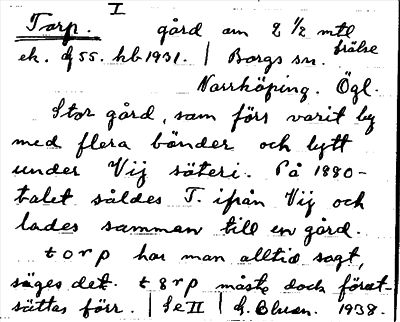 I
Torp. gård om 2 1/2 mtl
frälse
ek. df 55. hb 1931. | Borgs sn.
Norrköping. Ögl.
Stor gård, som förr varit by
med flera bönder och lytt
under Vij säteri. På 1880-
talet såldes T. ifrån Vij och
lades samman till en gård.
torp har man alltid sagt,
säges det. tårp måste dock förut-
sättas förr. | Se II | G. Blusn. 1938.